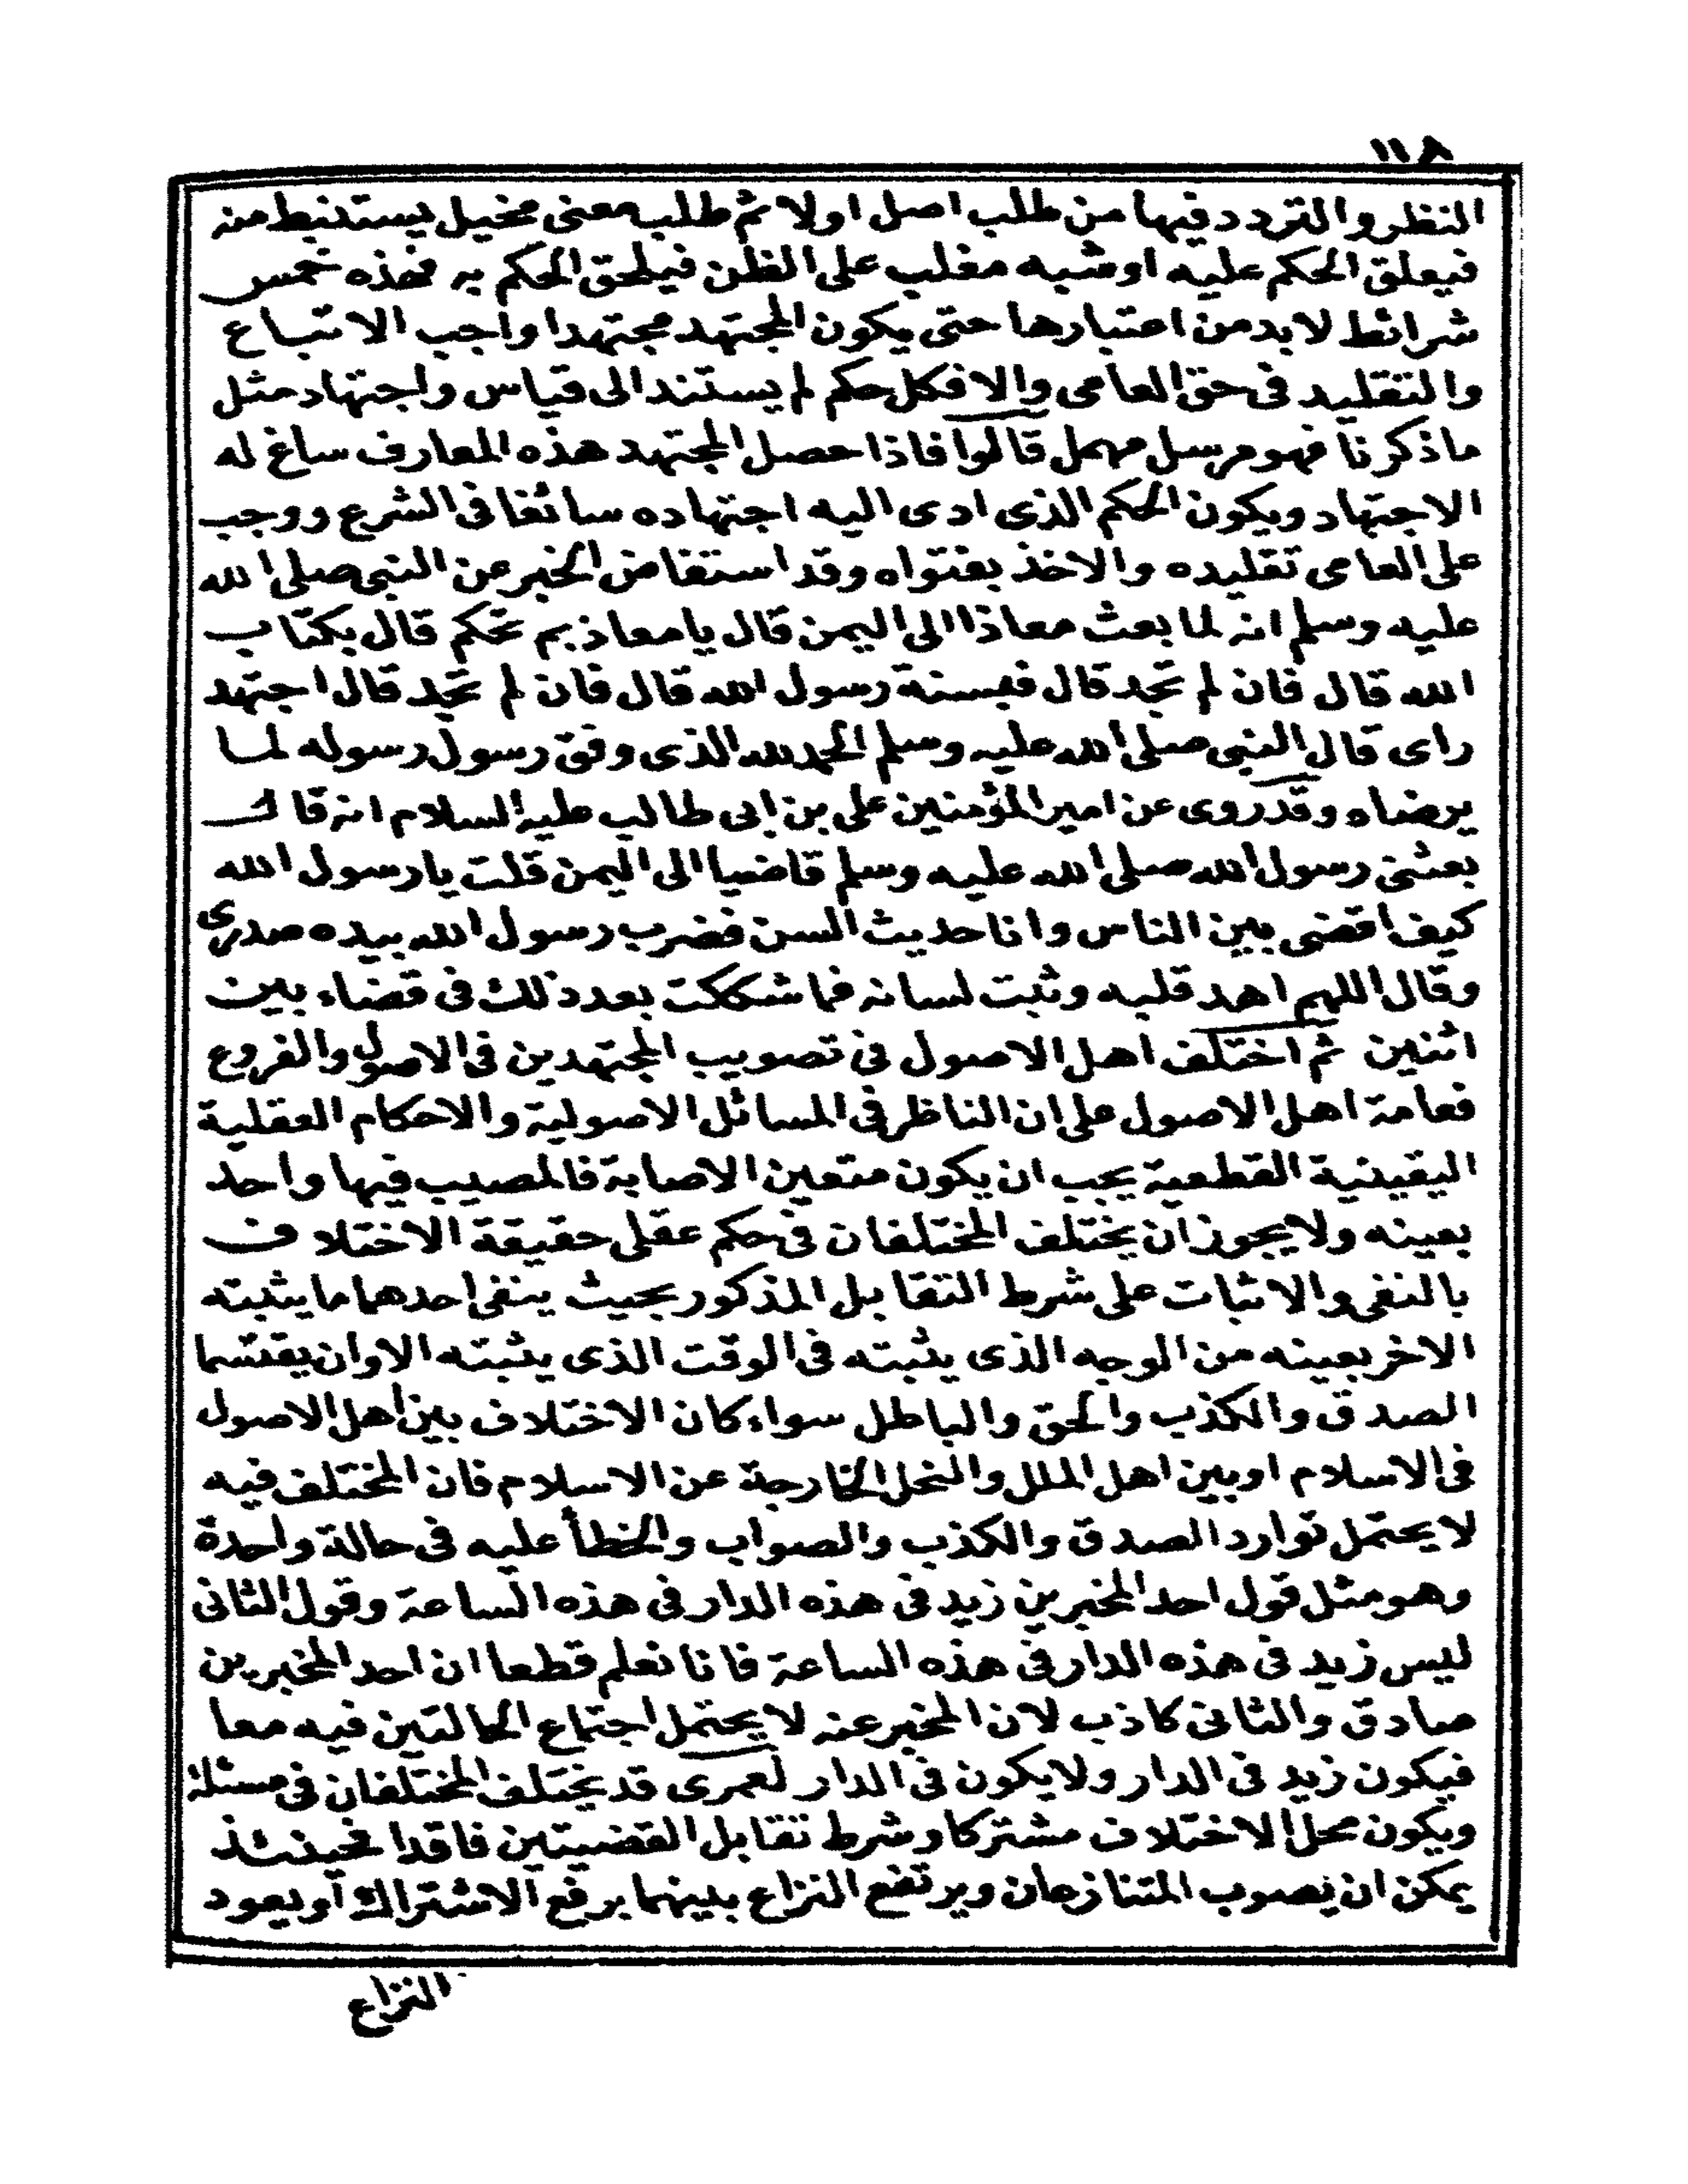 ١١٨
النظر والتردد فيها من طلب اصل اولا ثم طلب معنى مخيل يستنبط منه
فيعلق الحكم عليه او شبه مغلب على الظن فيلحق الحكم به فهذه خمس
شرائط لابد من اعتبارها حتى يكون المجتهد مجتهدا واجب الاتباع
والتقليد فى حق العامى والا فكل حكم لم يستند الى قياس واجتهاد مثل
ماذكرنا فهو مرسل مهمل قالوا فاذا حصل المجتهد هذه المعارف ساغ له
الاجتهاد ويكون الحكم الذى ادى اليه اجتهاده سائغا فى الشرع ووجب
على العامى تقليده والاخذ بفتواه وقد استفاض الخبر عن النبى صلى الله
عليه وسلم انه لما بعث معاذا الى اليمن قال يا معاذ بم تحكم قال بكتاب
الله قال فان لم تجد قال فبسنة رسول الله قال فان لم تجد قال اجتهد
راى قال النبى صلى الله عليه وسلم الحمد لله الذى وفق رسول رسوله لما
يرضاه وقد روى عن امير المؤمنين على بن ابى طالب عليه السلام انه قال
بعثنى رسول الله صلى الله عليه وسلم قاضيا الى اليمن قلت يا رسول الله
كيف اقضى بين الناس وانا حديث السن فضرب رسول الله بيده صدرى
وقال اللهم اهد قلبه وثبت لسانه فما شككت بعد ذلك فى قضاء بين
اثنين ثم اختلف اهل الاصول فى تصويب المجتهدين فى الاصول والفروع
فعامة اهل الاصول على ان الناظر فى المسائل الاصولية والاحكام العقلية
اليقينية القطعية يجب ان يكون متعين الاصابة فالمصيب فيها واحد
بعينه ولا يجوز ان يختلف المختلفان فى حكم عقلى حقيقة الاختلاف
بالنفى والاثبات على شرط التقابل المذكور بحيث ينفى احدهما ما يثبته
الاخر بعينه من الوجه الذى يثبته فى الوقت الذى يثبته الا وان يقتسما
الصدق والكذب والحق والباطل سواء كان الاختلاف بين اهل الاصول
فى الاسلام او بين اهل الملل والنحل الخارجة عن الاسلام فان المختلف فيه
لا يحتمل توارد الصدق والكذب والصواب والخطأ عليه فى حالة واحدة
وهو مثل قول احد المخبرين زيد فى هذه الدار فى هذه الساعة وقول الثانى
ليس زيد فى هذه الدار فى هذه الساعة فانا نعلم قطعا ان احد المخبرين
صادق والثانى كاذب لان المخبر عنه لا يحتمل اجتماع الحالتين فيه معا
فيكون زيد فى الدار ولا يكون فى الدار لعمرى قد يختلف المختلفان فى مسئلة
ويكون محل الاختلاف مشتركا وشرط تقابل القضيتين فاقدا فحينئذ
يمكن ان يصوب المتنازعان ويرتفع النزاع بينهما برفع الاشتراك او يعود
النزاع